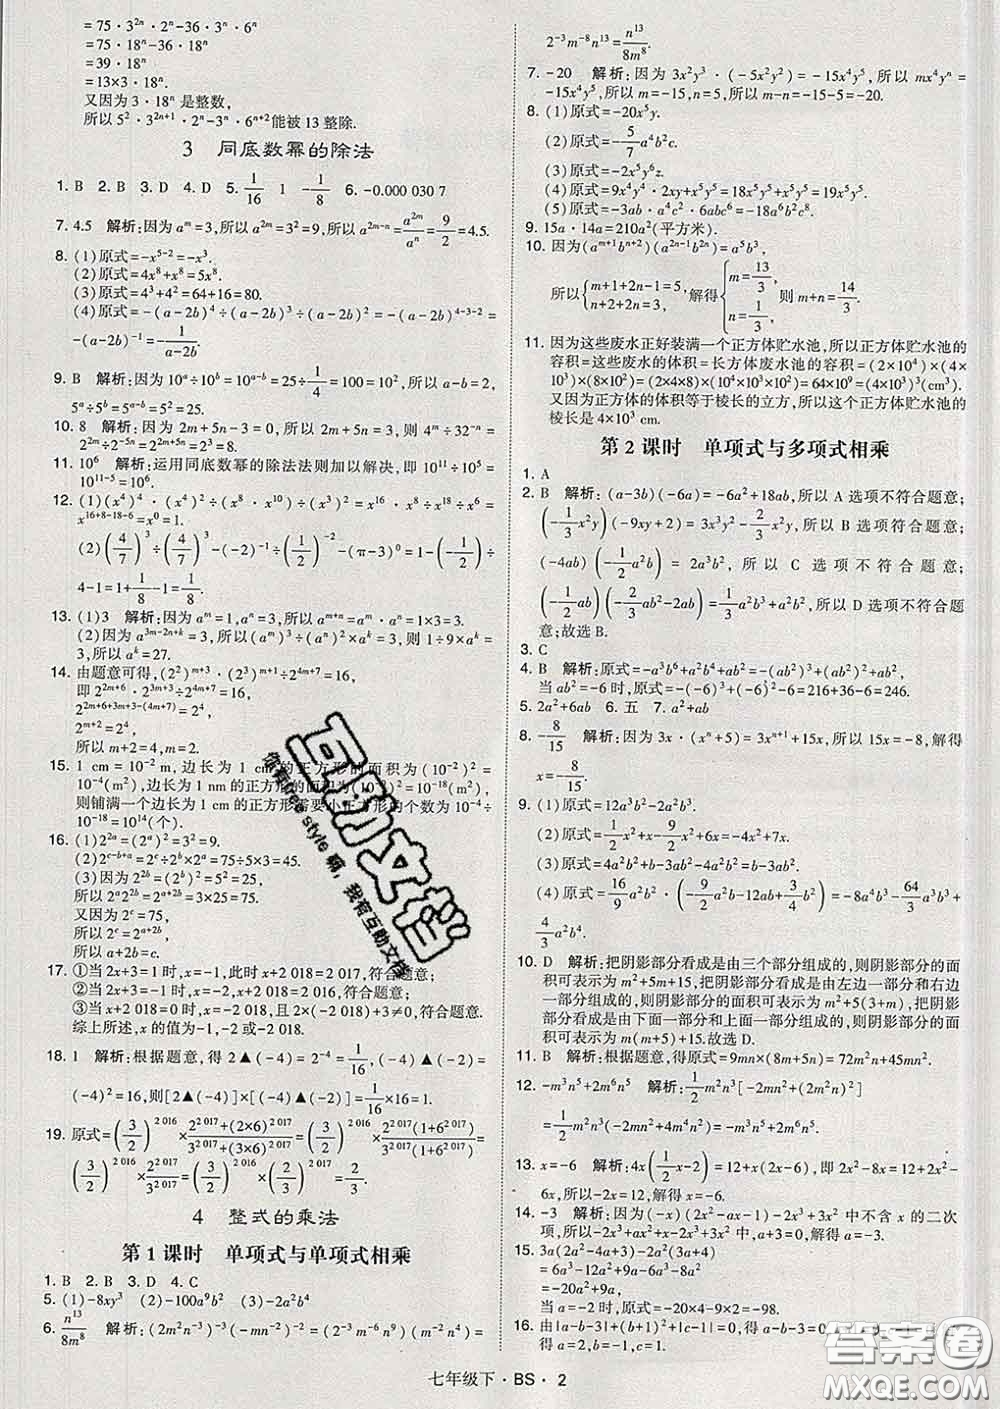 =75·3²ⁿ·2ⁿ-36·3ⁿ·6ⁿ
=75·18ⁿ-36·18ⁿ
=39·18ⁿ
=13×3·18ⁿ.
又因为 3·18ⁿ 是整数,
所以 5²·3²ⁿ⁺¹·2ⁿ-3ⁿ·6ⁿ⁺²能被 13 整除.
3 同底数幂的除法
1. B 2. B 3. D 4. D 5. 1/16 1 -1/8 6. -0.000 030 7
7. 4.5 解析:因为 aᵐ=3,所以 a²ᵐ=3²=9,所以 a²ᵐ⁻ⁿ=a²ᵐ/aⁿ=9/2=4.5.
8. (1)原式=-x⁵⁻²=-x³.
(2)原式=4x⁸+x⁸=5x⁸.
(3)原式=4³+4²=64+16=80.
(4)原式=-(a-2b)⁴÷(a-2b)³÷(a-2b)²=-(a-2b)⁴⁻³⁻²=
-(a-2b)⁻¹=-1/(a-2b).
9. B 解析:因为 10ᵃ÷10ᵇ=10ᵃ⁻ᵇ=25÷1/4=100=10²,所以 a-b=2,
5ᵃ÷5ᵇ=5ᵃ⁻ᵇ=5²=25.
10. 8 解析:因为 2m+5n-3=0,所以 2m+5n=3,则 4ᵐ÷32⁻ⁿ=
2²ᵐ÷2⁻⁵ⁿ=2²ᵐ⁺⁵ⁿ=2³=8.
11. 10⁶ 解析:运用同底数幂的除法法则加以解决,即 10¹¹÷10⁵=
10¹¹⁻⁵=10⁶.
12. (1)(x⁴)⁴·(x⁴)²÷(x⁸·x¹⁰)÷(x³)²=x¹⁶·x⁸÷x¹⁸÷x⁶=
x¹⁶⁺⁸⁻¹⁸⁻⁶=x⁰=1.
(2)(4/7)³÷(4/7)³-(-2)⁻¹÷(1/2)⁻²-(π-3)⁰=1-(-1/2)÷
4-1=1+1/8-1=1/8.
13. (1)3 解析:因为 aᵐ=1,aⁿ=3,所以 aᵐ⁺ⁿ=aᵐ·aⁿ=1×3=3.
(2)因为 a³ᵐ⁻²ⁿ⁺ᵏ=3,所以(aᵐ)³÷(aⁿ)²·aᵏ=3,所以 1÷9×aᵏ=
3,所以 aᵏ=27.
14. 由题意可得,(2²)ᵐ⁺³·(2³)ᵐ⁺¹÷2⁴ᵐ⁺⁷=16,
即 2²ᵐ⁺⁶·2³ᵐ⁺³÷2⁴ᵐ⁺⁷=16,
2²ᵐ⁺⁶⁺³ᵐ⁺³⁻⁽⁴ᵐ⁺⁷⁾=2⁴,
2ᵐ⁺²=2⁴,
所以 m+2=4,m=2.
15. 1 cm=10⁻² m,边长为 1 cm的正方形的面积为(10⁻²)²=
10⁻⁴(m²),边长为1 nm的正方形的面积为(10⁻⁹)²=10⁻¹⁸(m²),
则铺满一个边长为 1 cm 的正方形需要小正方形的个数为 10⁻⁴÷
10⁻¹⁸=10¹⁴(个).
16. (1)2²ᵃ=(2ᵃ)²=3²=9.
(2)2ᶜ⁻ᵇ⁺ᵃ=2ᶜ÷2ᵇ×2ᵃ=75÷5×3=45.
(3)因为 2²ᵇ=(2ᵇ)²=5²=25,
所以 2ᵃ2²ᵇ=2ᵃ⁺²ᵇ=3×25=75.
又因为 2ᶜ=75,
所以 2ᶜ=2ᵃ⁺²ᵇ,
所以 a+2b=c.
17. ①当 2x+3=1 时,x=-1,此时 x+2 018=2 017,符合题意;
②当 2x+3=-1时,x=-2,此时 x+2 018=2 016,符合题意;
③当 x+2 018=0 时,x=-2 018,且 2×(-2 018)+3≠0,符合题意.
综上所述,x 的值为-1,-2 或-2 018.
18. 1 解析:根据题意,得 2▲(-4)=2⁻⁴=1/16,(-4)▲(-2)=
(-4)²=16,所以[2▲(-4)]×[(-4)▲(-2)]=1/16×16=1.
19. 原式=(3/2)²⁰¹⁶×(2²⁰¹⁷+(2×6)²⁰¹⁷)/(3²⁰¹⁷+(3×6)²⁰¹⁷)=(3/2)²⁰¹⁶×2²⁰¹⁷(1+6²⁰¹⁷)/3²⁰¹⁷(1+6²⁰¹⁷)
=(3/2)²⁰¹⁶×2²⁰¹⁷/3²⁰¹⁷=(3/2)²⁰¹⁶×(2/3)²⁰¹⁷=2/3.
4 整式的乘法
第 1 课时 单项式与单项式相乘
1. B 2. B 3. D 4. C
5. (1)-8xy³ (2)-100a⁹b² (3)-2a²b⁴
6. n¹³/8m⁸ 解析:(2m²n⁻³)⁻³(-mn⁻²)⁻²=(2⁻³m⁻⁶n⁹)(m⁻²n⁴)=
2⁻³m⁻⁸n¹³=n¹³/8m⁸.
7. -20 解析:因为 3x²y³·(-5x²y²)=-15x⁴y⁵,所以 mx⁴yⁿ=
-15x⁴y⁵,所以 m=-15,n=5,所以 m-n=-15-5=-20.
8. (1)原式=-20x⁵y.
(2)原式=-5/7a³b³c.
(3)原式=-2x⁷z.
(4)原式=9x⁴y⁴·2xy+x⁵y⁵=18x⁵y⁵+x⁵y⁵=19x⁵y⁵.
(5)原式=-3ab·a⁴c²·6abc⁶=-18a⁶b²c⁸.
9. 15a·14a=210a²(平方米).
10. 因为(aᵐ⁺¹bⁿ⁺²)(a²ⁿ⁻¹b²ⁿ)=a⁵b³,
所以{m+1+2n-1=5, n+2+2n=3,解得{m=13/3, n=1/3,则 m+n=14/3.
11. 因为这些废水正好装满一个正方体贮水池,所以正方体贮水池的
容积=这些废水的体积=长方体废水池的容积=(2×10⁴)×(4×
10³)×(8×10²)=(2×4×8)×(10⁴×10³×10²)=64×10⁹=(4×10³)³(cm³).
又因为正方体的体积等于棱长的立方,所以这个正方体贮水池的
棱长是 4×10³ cm.
第 2 课时 单项式与多项式相乘
1. A
2. B 解析:(a-3b)(-6a)=-6a²+18ab,所以 A 选项不符合题意;
(-1/3x²y)(-9xy+2)=3x³y²-2/3x²y,所以 B 选项符合题意;
(-4ab)(-1/2a²b)=2a³b²,所以 C 选项不符合题意;
(-1/2ab)(-2/3ab²-2ab)=1/3a²b³+a²b²,所以 D 选项不符合题
意;故选 B.
3. C
4. B 解析:原式=-a³b⁶+a²b⁴+ab²=-(ab²)³+(ab²)²+ab².
当 ab²=-6 时,原式=-(-6)³+(-6)²-6=216+36-6=246.
5. 2a²+6ab 6. 五 7. a²+ab
8. -8/15 解析:因为 3x·(xⁿ+5)=3xⁿ⁺¹+15x,所以 15x=-8,解得
x=-8/15.
9. (1)原式=12a³b²-2a²b³.
(2)原式=1/2x²+x-9/2x²+6x=-4x²+7x.
(3)原式=4a²b+3ab-4a²b²=b-3ab².
(4)原式=16/9a²b²·(-9/2a²b-12ab+3/4b²)=-8a⁴b³-64/3a³b³+
4/3a²b⁴.
10. D 解析:把阴影部分看成是由三个部分组成的,则阴影部分的面
积可表示为 m²+5m+15,把阴影部分看成是由左边一部分和右边
一部分组成的,则阴影部分的面积可表示为 m²+5(3+m),把阴影
部分看成是由下面一部分和上面一部分组成的,则阴影部分的面
积可表示为 m(m+5)+15.故选 D.
11. B 解析:根据题意,得原式=9mn×(8m+5n)=72m²n+45mn².
12. -m³n⁵+2m⁶n⁵ 解析:1/2m²n³[-2mn²+(2m²n)²]=
1/2m²n³(-2mn²+4m⁴n²)=-m³n⁵+2m⁶n⁵.
13. x=-6 解析:4x(1/2x-2)=12+x(2x-6),即 2x²-8x=12+2x²-
6x,所以-2x=12,解得 x=-6.
14. -3 解析:因为(-x)(2x²-ax-1)-2x³+3x² 中不含 x 的二次
项,所以-2x³+ax²+x-2x³+3x² 中不含 x 的二次项,a+3=0,解得 a=-3.
15. 3a(2a²-4a+3)-2a²(3a+4)
=6a³-12a²+9a-6a³-8a²
=-20a²+9a,
当 a=-2 时,原式=-20×4-9×2=-98.
16. 由 |a-b-3|+(b+1)²+|c-1|=0,得 a-b-3=0,
解得 a=2,b=-1,c=1.
七年级下·BS·2
互助文档
你有free style 嘛,我有互助文档
答案圈
MXQE.COM